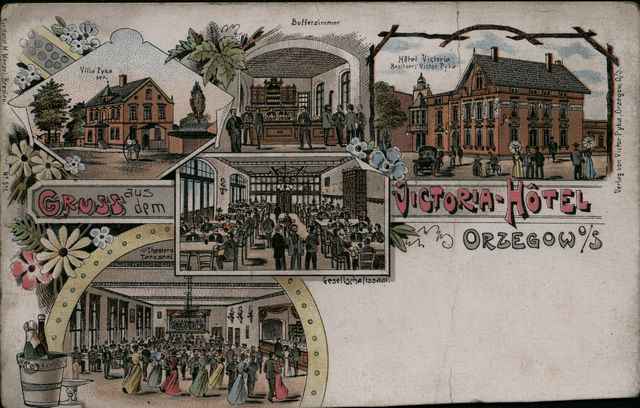 Buffetzimmer
Villa Pyka
sen.
Hôtel Victoria
Besitzer: Victor Pyka
GRUSS aus
dem
VICTORIA-HÔTEL
ORZEGOW O/S
Gesellschaftssaal.
u. Theater
Tanzsaal
Verlag von Victor Pyka, Orzegow O/S.